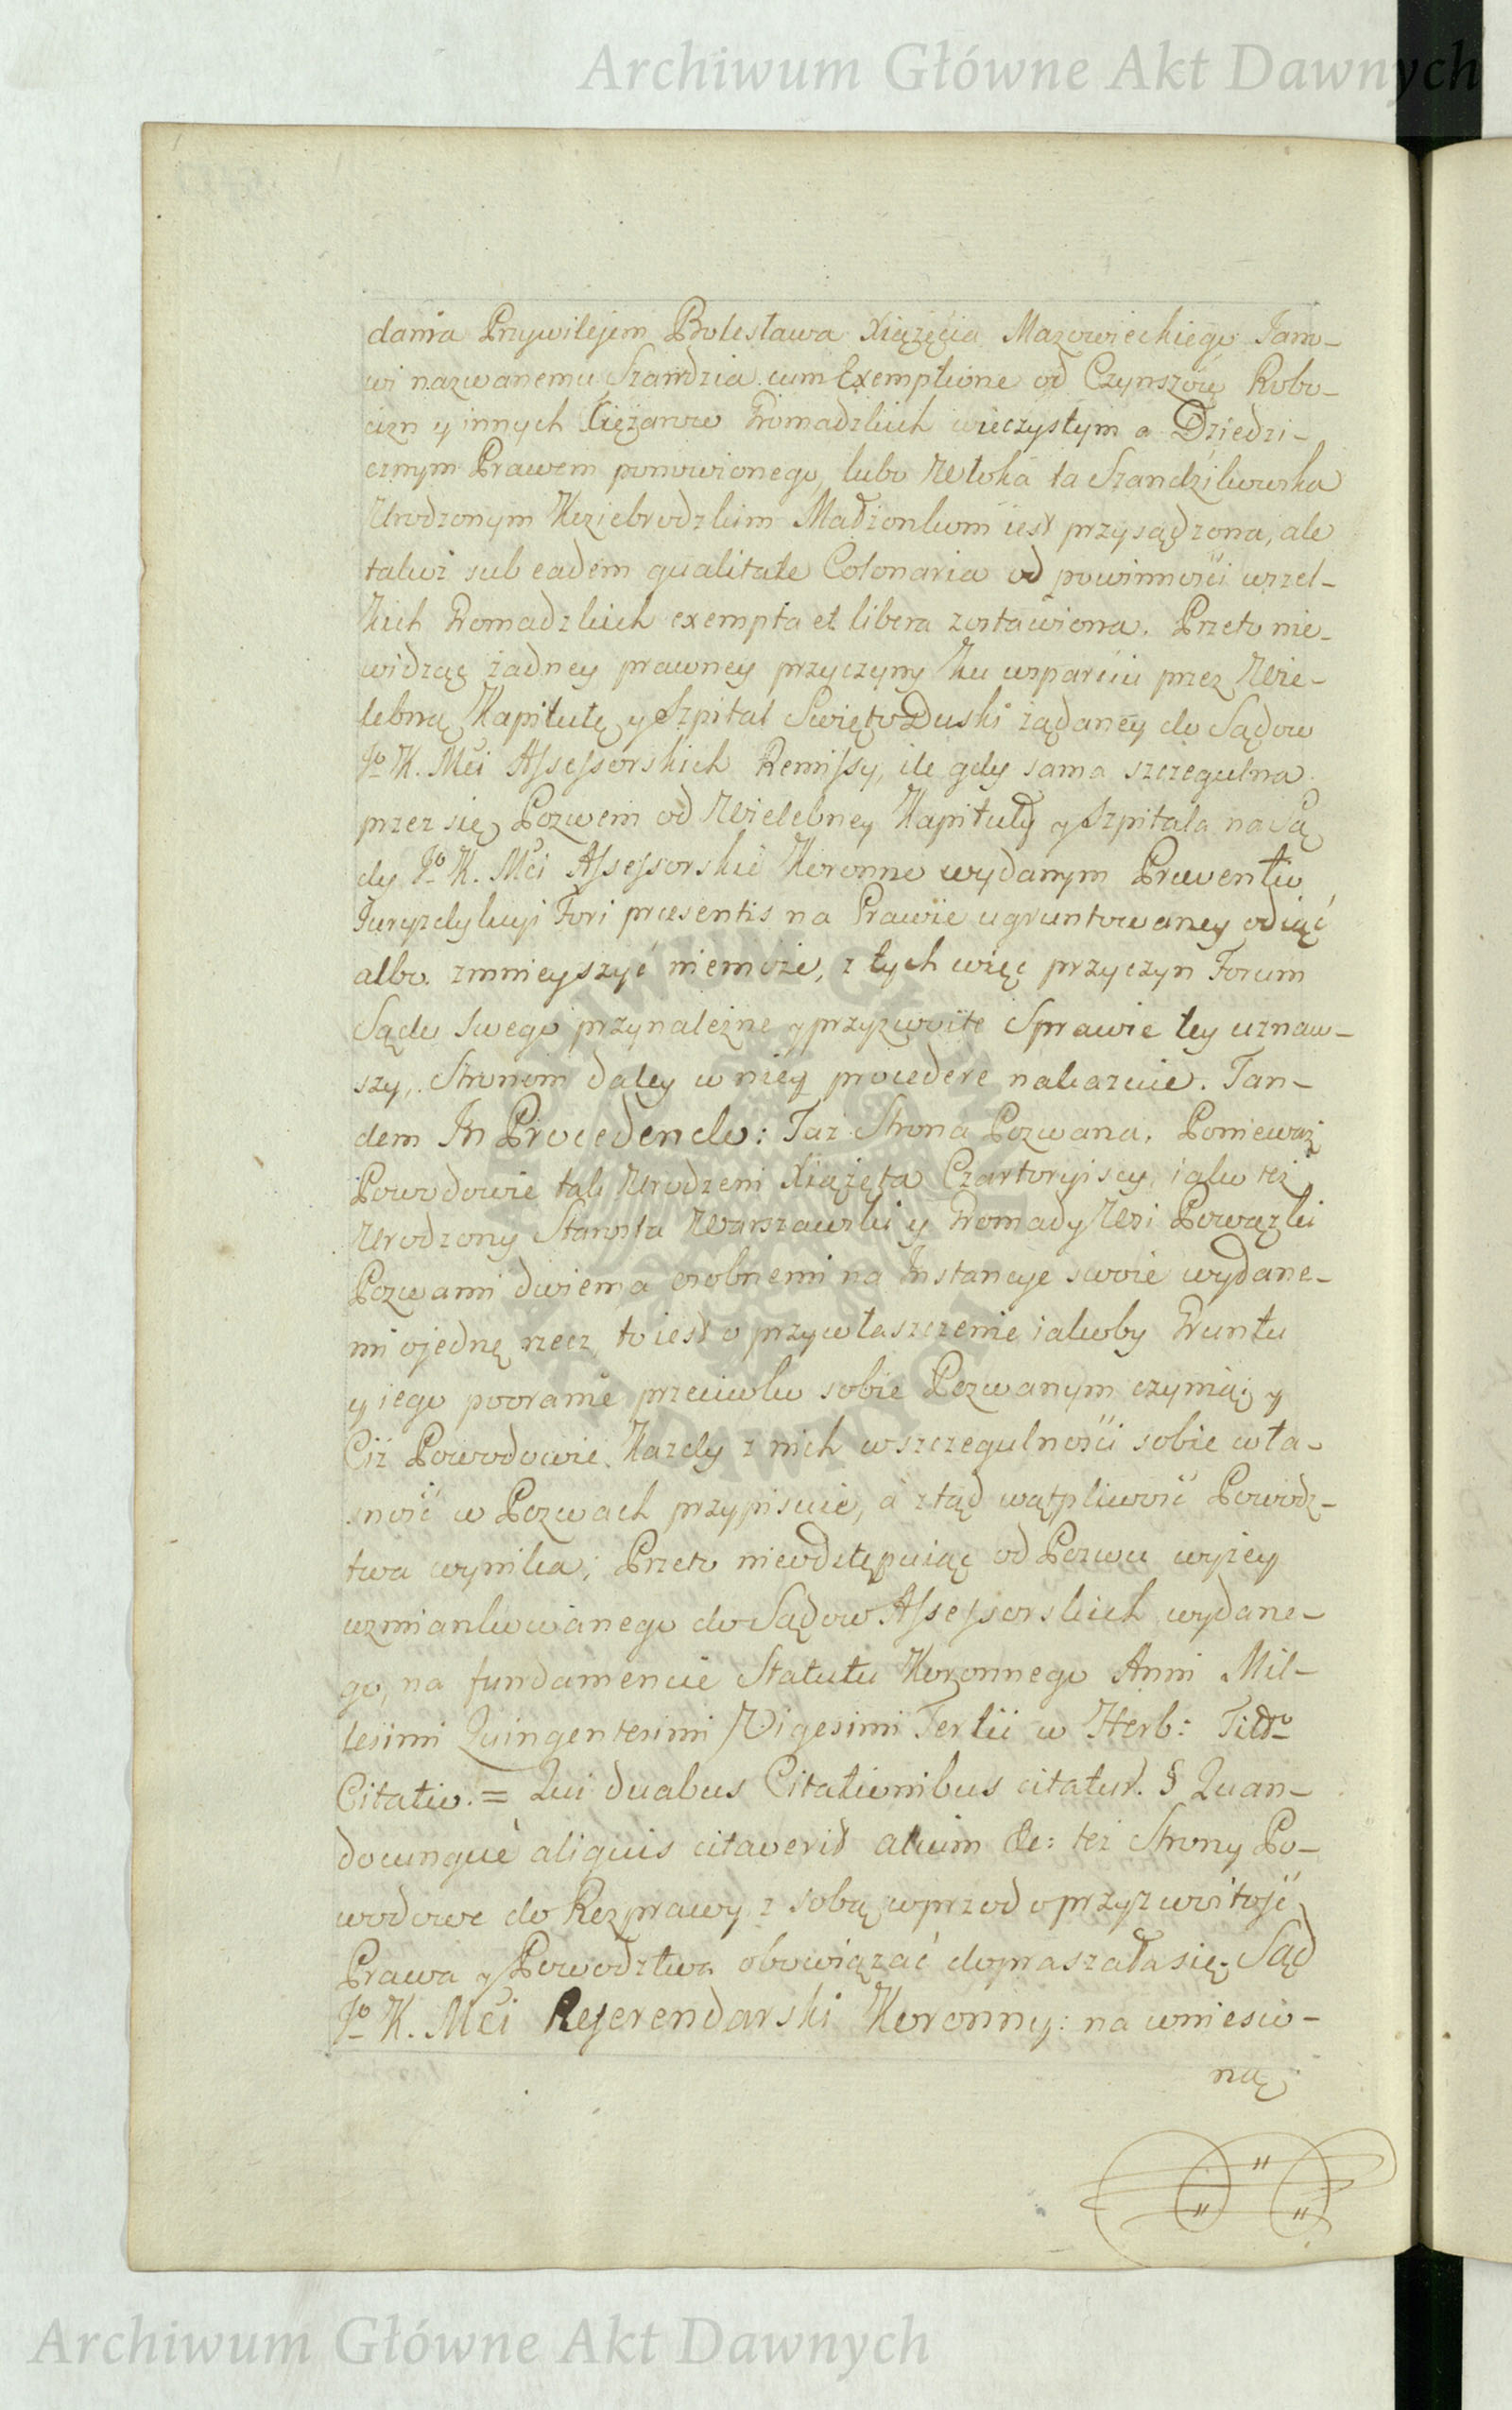 Archiwum Główne Akt Dawnych
dania Przywilejem Bolesława Xiążęcia Mazowieckiego Jano-
wi nazwanemu Szandzia cum Exemptione od Czynszów Robo-
cizn y innych Ciężarow Gromadzkich wieczystym a Dziedzi-
cznym Prawem ponowionego, lubo Włoka ta Szandzikowska
Urodzonym Krziebrodzkim Małżonkom iest przysądzona, ale
takoż sub eadem qualitate Colonaria od powinności wszel-
kich Gromadzkich exempta et libera zostawiona. Przeto nie-
widząc żadney prawney przyczyny ku wsparciu przez Wie-
lebną Kapitułę y Szpital Swięto Duski żądaney do Sądow
Jº K. Mći Assessorskich Remissy, ile gdy sama szczegulna
przez się Pozwem od Wielebney Kapituły y Szpitala na Są
dy Jº K. Mći Assessorskie Koronne wydanym Praeventio
Juryzdykcyi Fori praesentis na Prawie ugruntowaney odiąć
albo zmnieyszyć niemoże, z tych więc przyczyn Forum
Sądu swego przynależne y przyzwoite Sprawie tey uznaw-
szy, Stronom daley w niey procedere nakazuie. Tan-
dem In Procedendo: Taż Strona Pozwana, Ponieważ
Powodowie tak Urodzeni Xiążęta Czartoryiscy, iako też
Urodzony Starosta Warszawski y Gromady Wsi Powązki
Pozwami dwiema osobnemi na Instancye swoie wydane-
mi ojednę rzecz, to iest o przywłaszczenie iakoby Gruntu
y iego pooranie przeciwko sobie Pozwanym czynią; y
Ciż Powodowie Kazdy z nich w szczegulności sobie wła-
sność w Pozwach przypisuie, a ztąd wątpliwość Powodz-
twa wynika; Przeto nieodstępuiąc od Pozwu wyżey
wzmiankowanego do Sądow Assessorskich wydane-
go, na fundamencie Statutu Koronnego Anni Mil-
lesimi Quingentesimi Vigesimi Tertii w Herb: Titº
Citatio. = Qui duabus Citationibus citatur. § Quan-
documque aliquis citaverit alium &c: też Strony Po-
wodowe do Rozprawy z sobą wprzod o przyzwoitość
Prawa y Powodztwa obowiązać dopraszała się. Sąd
Jº K. Mći Referendarski Koronny: na wniesio-
ną
Archiwum Główne Akt Dawnych